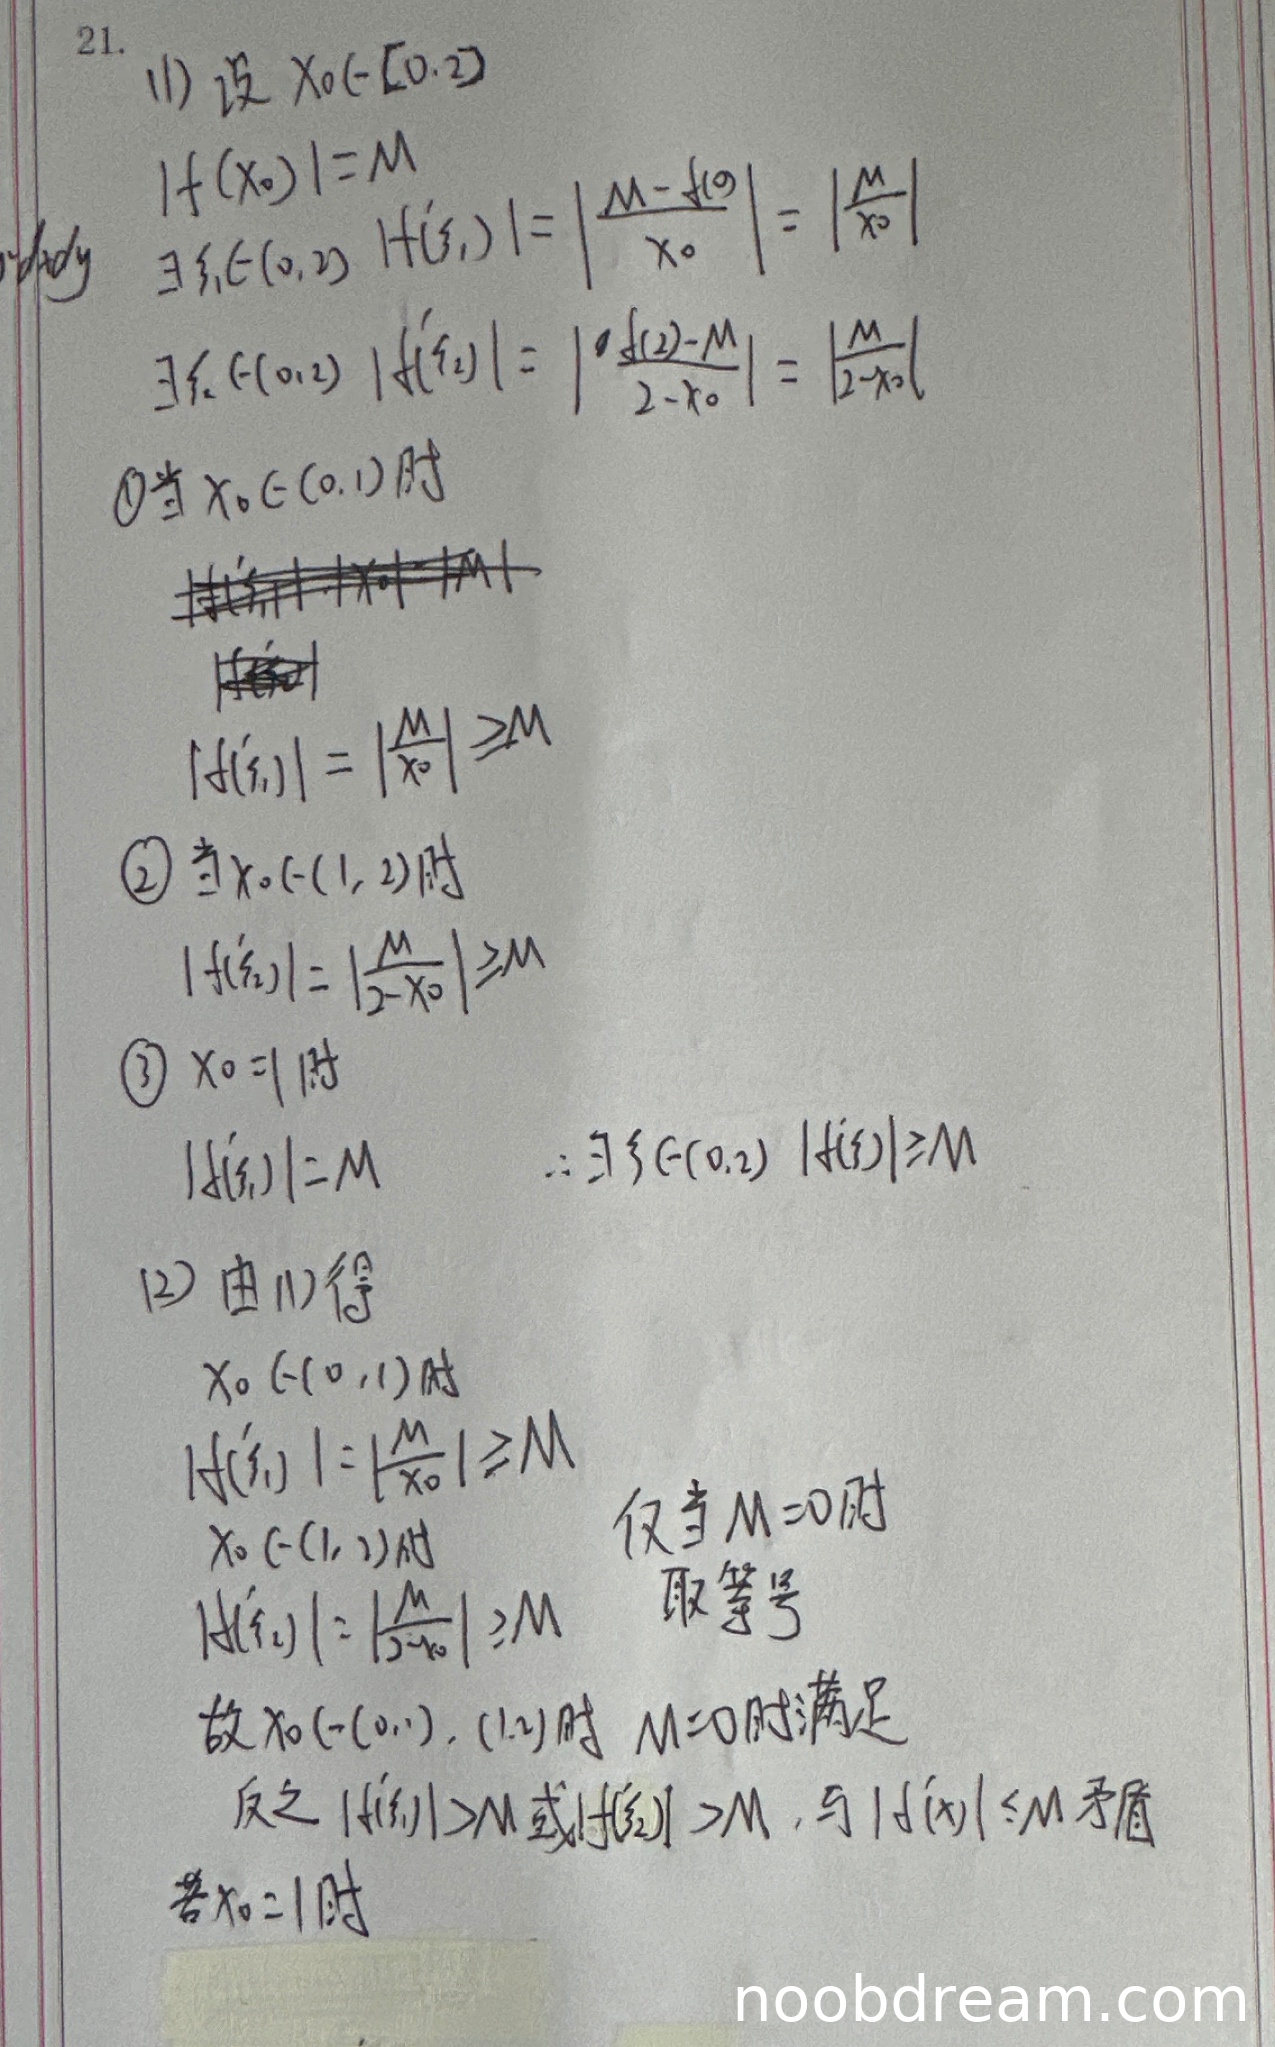 21.
(1) 设 x₀∈[0.2]
|f(x₀)|=M
∃ξ₁∈(0,2) |f'(ξ₁)|=|(M-f(0))/x₀|=|M/x₀|
∃ξ₂∈(0,2) |f'(ξ₂)|=|(f(2)-M)/(2-x₀)|=|M/(2-x₀)|
①当 x₀∈(0.1)时
|f'(ξ₁)|=|M/x₀|≥M
② 当x₀∈(1,2)时
|f'(ξ₂)|=|M/(2-x₀)|≥M
③ x₀=1时
|f'(ξ₁)|=M ∴∃ξ∈(0.2) |f'(ξ)|≥M
(2) 由(1)得
x₀∈(0,1)时
|f'(ξ₁)|=|M/x₀|≥M
仅当M=0时
x₀∈(1,2)时
取等号
|f'(ξ₂)|=|M/(2-x₀)|≥M
故x₀∈(0,1),(1.2)时 M=0时满足
反之 |f'(ξ₁)|>M或|f'(ξ₂)|>M,与|f'(x)|≤M矛盾
若x₀=1时
noobdream.com